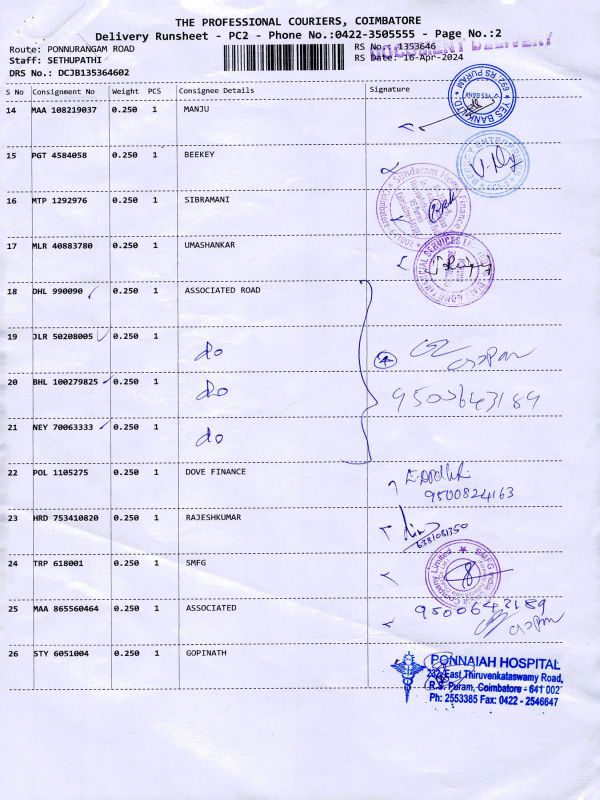 THE PROFESSIONAL COURIERS, COIMBATORE
Delivery Runsheet - PC2 - Phone No.:0422-3505555 - Page No.:2
Route: PONNURANGAM ROAD
Staff: SETHUPATHI
DRS No.: DCJB135364602
RS No.: 1353646
DOCUMENT DELIVERY
RS Date: 16-Apr-2024
S No Consignment No Weight PCS Consignee Details Signature
14 MAA 108219037 0.250 1 MANJU
YES BANK LTD 692 RS PURAM
15 PGT 4584058 0.250 1 BEEKEY
16 MTP 1292976 0.250 1 SIBRAMANI
Sundaram Home Finance
17 MLR 40883780 0.250 1 UMASHANKAR
18 DHL 990090 0.250 1 ASSOCIATED ROAD
19 JLR 50208005 0.250 1 do
20 BHL 100279825 0.250 1 do
9500643189
21 NEY 70063333 0.250 1 do
22 POL 1105275 0.250 1 DOVE FINANCE
9500824163
23 HRD 753410820 0.250 1 RAJESHKUMAR
6381081350
24 TRP 618001 0.250 1 SMFG
25 MAA 865560464 0.250 1 ASSOCIATED
9500643189
26 STY 6051004 0.250 1 GOPINATH
PONNAIAH HOSPITAL
232, East Thiruvenkataswamy Road,
R.S. Puram, Coimbatore - 641 002
Ph: 2553385 Fax: 0422 - 2546647